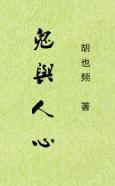 鬼與人心
胡也频 著